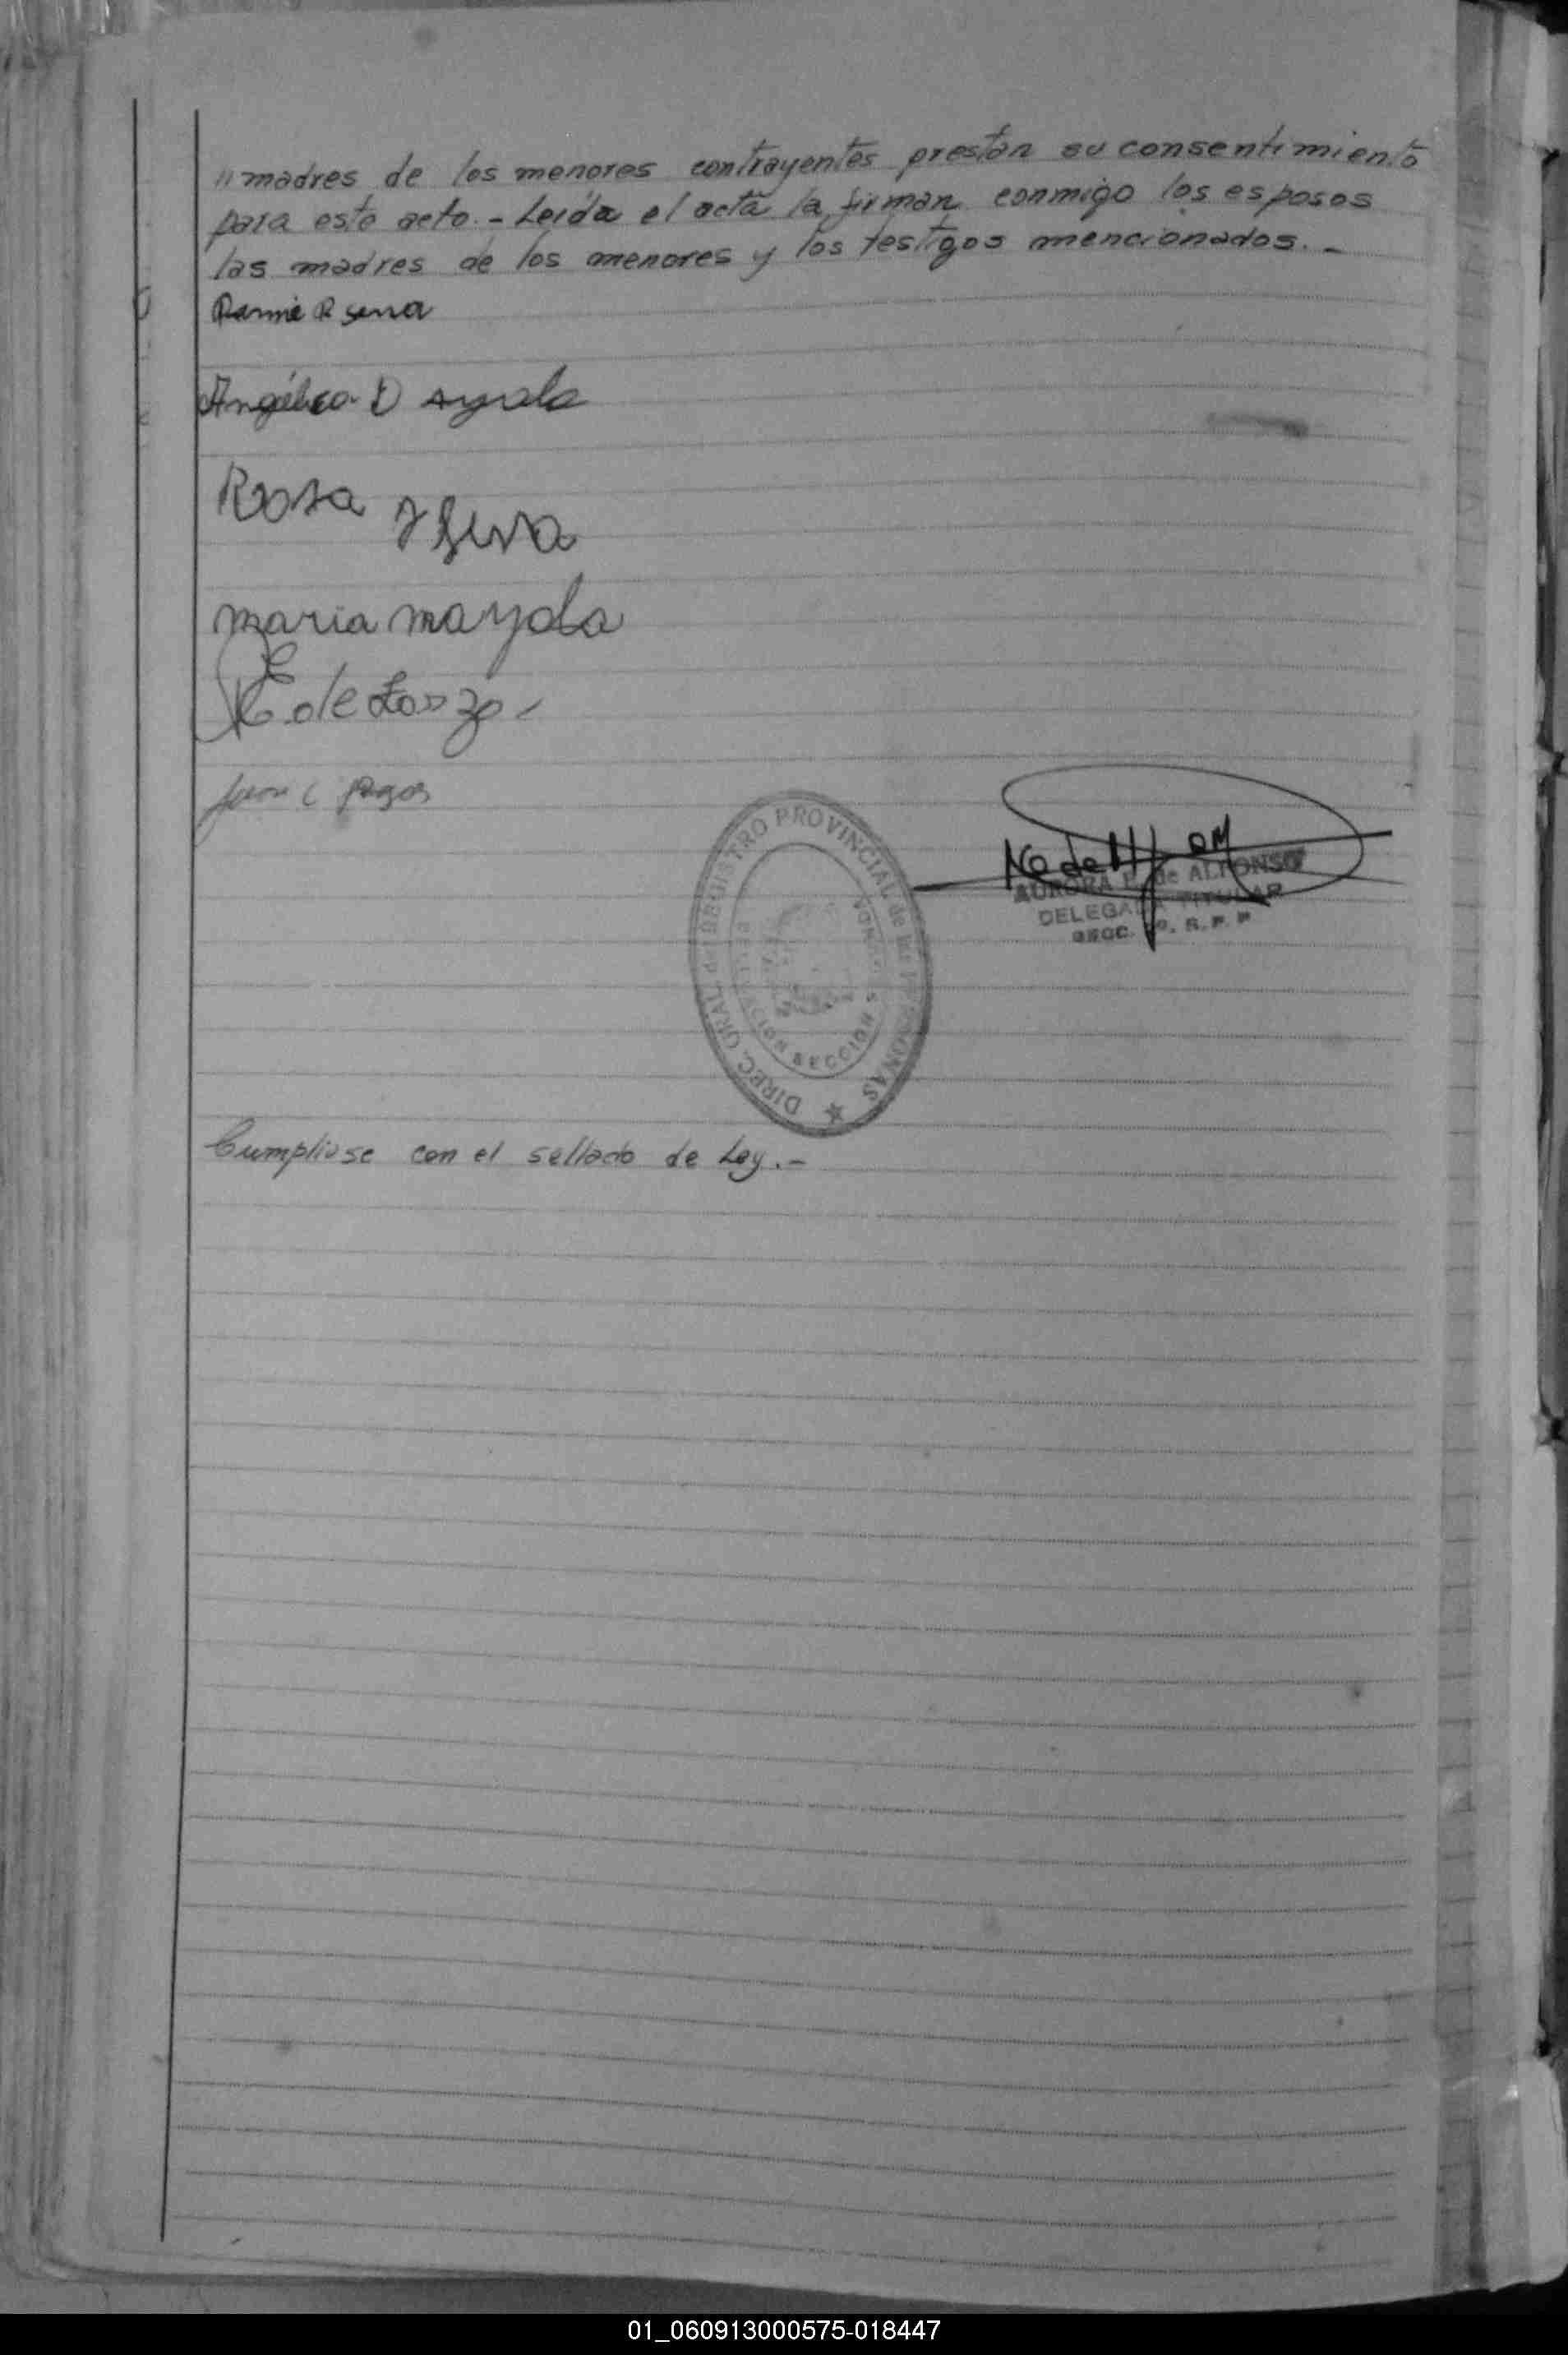 "madres de los menores contrayentes prestan su consentimiento
para este acto.- Leída el acta la firman conmigo los esposos
las madres de los menores y los testigos mencionados.-
R
Angélica D Ayala
Rosa
maria mayola
E. de
Juan C
DIREC. GRAL. del REGISTRO PROVINCIAL de las PERSONAS
SECCION
AURORA E. de ALFONSO
DELEGADA TITULAR
R. P. P.
Cumpliose con el sellado de Ley.-
01_060913000575-018447